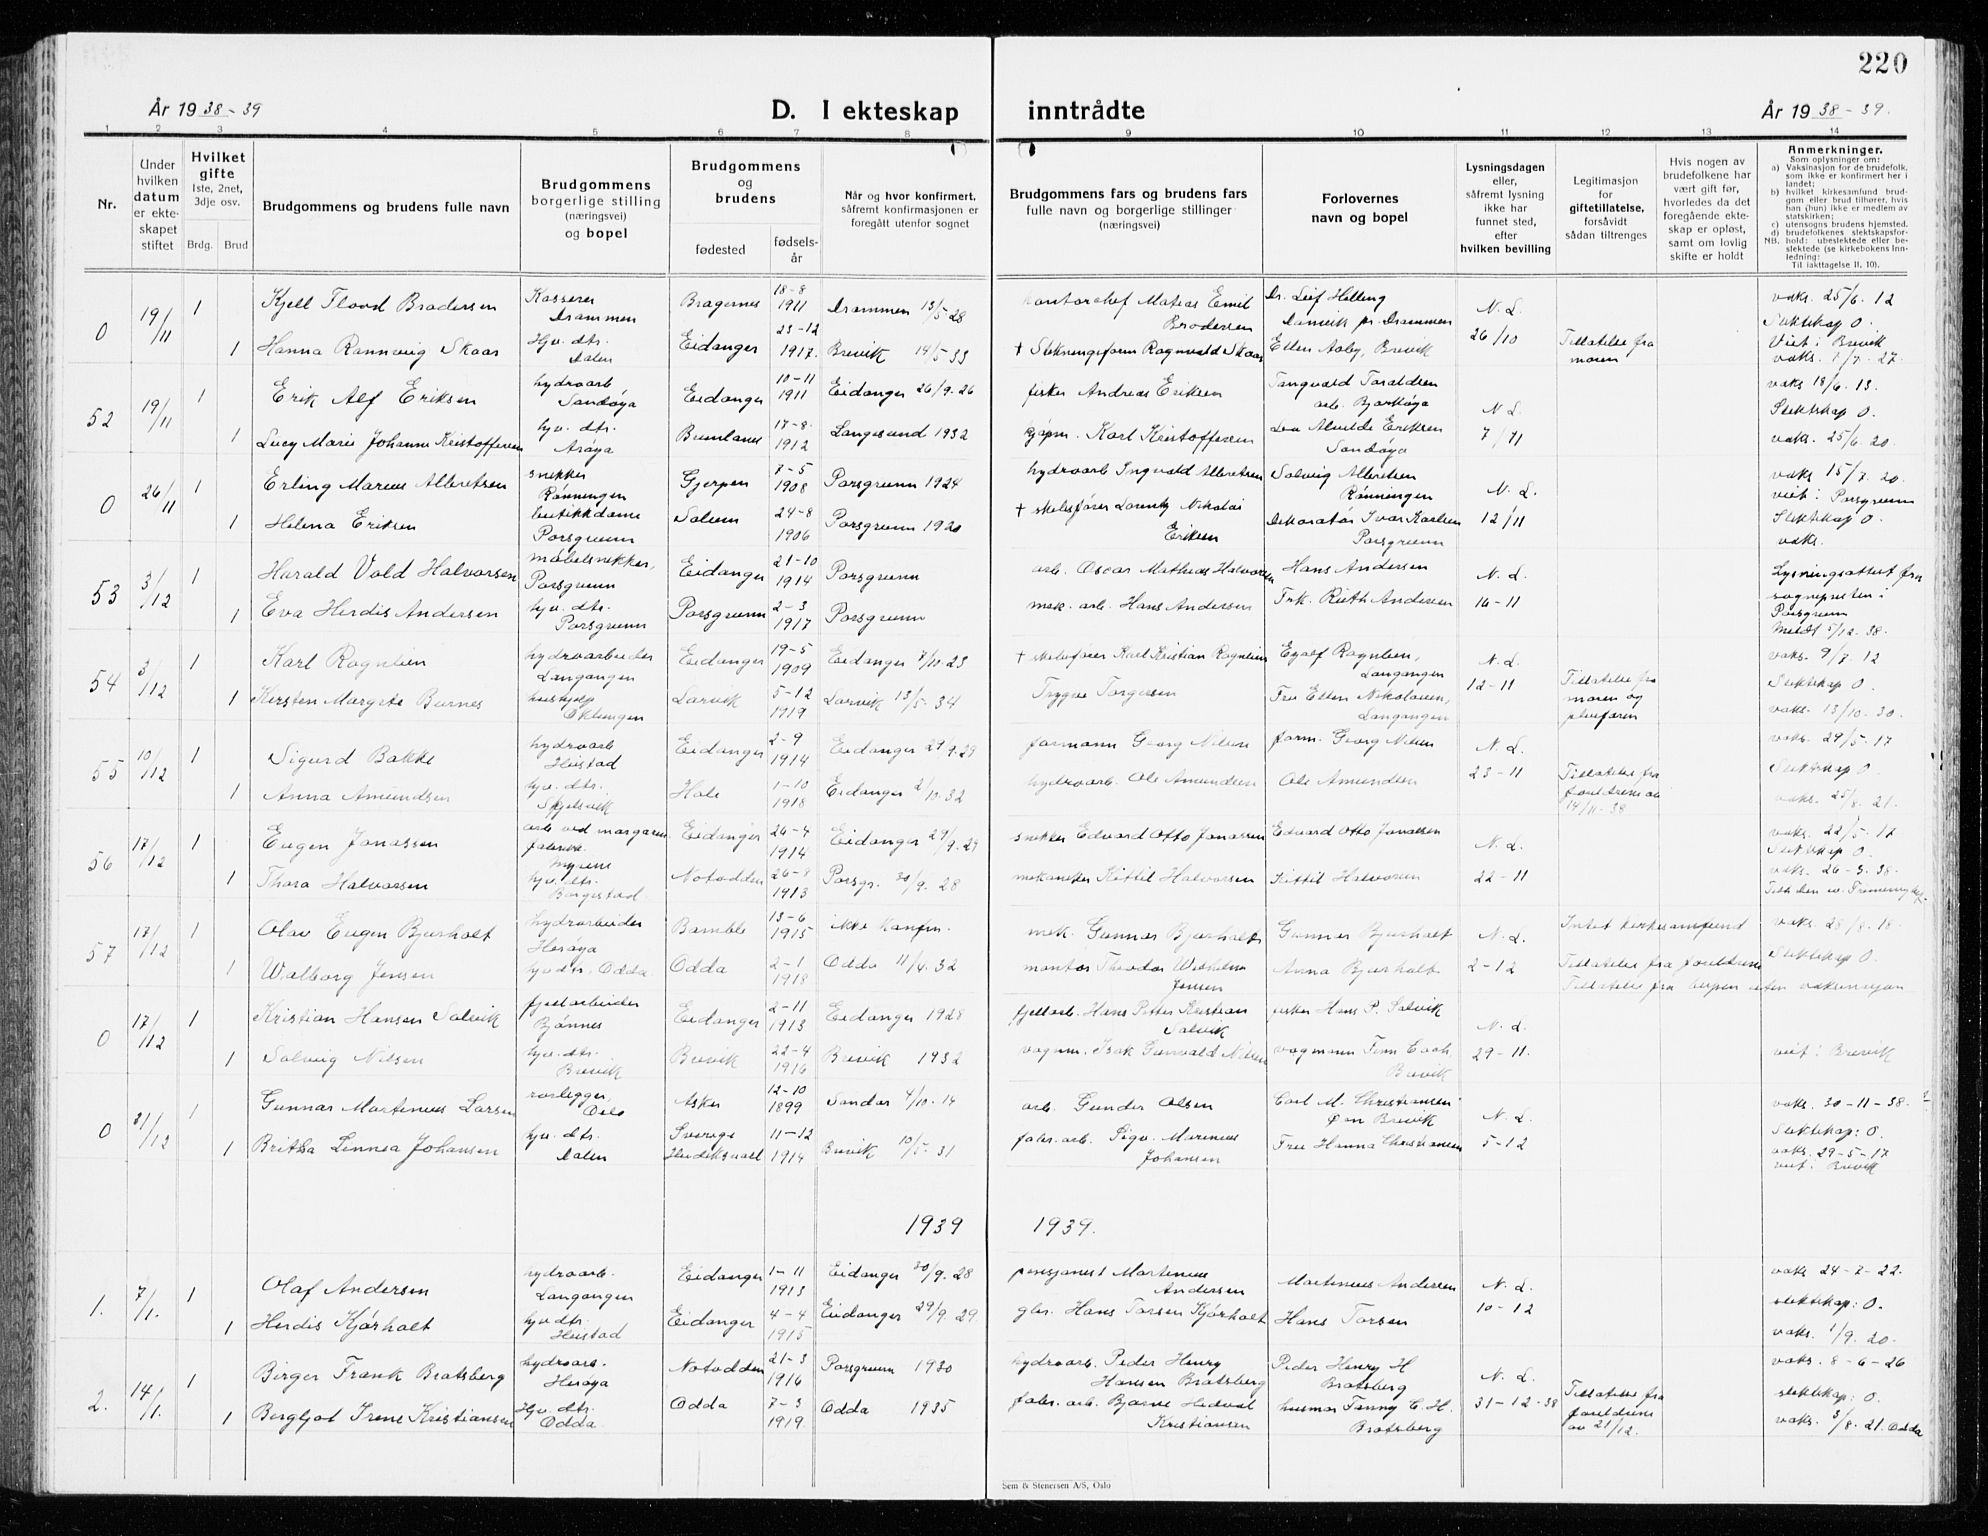 220
År 1938-39
D. I ekteskap inntrådte
År 1938-39.
1 2 3 4 5 6 7 8 9 10 11 12 13 14
Nr.
Under hvilken datum er ekteskapet stiftet
Hvilket gifte
1ste, 2net, 3dje osv.
Brdg. Brud
Brudgommens og brudens fulle navn
Brudgommens borgerlige stilling (næringsvei) og bopel
Brudgommens og brudens
fødested
fødselsår
Når og hvor konfirmert, såfremt konfirmasjonen er foregått utenfor sognet
Brudgommens fars og brudens fars fulle navn og borgerlige stillinger (næringsvei)
Forlovernes navn og bopel
Lysningsdagen eller, såfremt lysning ikke har funnet sted, efter hvilken bevilling
Legitimasjon for giftetillatelse, forsåvidt sådan tiltrenges
Hvis nogen av brudefolkene har vært gift før, hvorledes da det foregående ekteskap er opløst, samt om lovlig skifte er holdt
Anmerkninger.
Som oplysninger om:
a) Vaksinasjon for de brudefolk, som ikke er konfirmert her i landet;
b) hvilket kirkesamfund brudgom eller brud tilhører, hvis han (hun) ikke er medlem av statskirken;
c) utensogns brudens hjemsted.
d) brudefolkenes slektskapsforhold: ubeslektede eller beslektede (se kirkebokens Innledning:
NB. Til iakttagelse II, 10).
0 19/11 1 Kjell Flood Brodersen Kasserer Drammen Bragernes 18-8 1911 Drammen 13/5-28 kontorchef Matias Emil Brodersen Dr. Leif Helling Danvik pr Drammen N. L. 26/10 vaks. 25/6. 12
Slektskap 0.
1 Hanna Rannveig Skaar Hjv. dtr. Dalen Eidanger 23-12 1917. Brevik 14/5-33 Ragnvald Skaar Ellen Aaby, Brevik Tillatelse fra moren Viet i Brevik vaks. 1/7. 27
52 19/11 1 Erik Alf Eriksen hydroarb Sandøya Eidanger 10-11 1911 Eidanger 26/9.26 fisker Andreas Eriksen Tangvald Taraldsen arb. Bjørkøya N. L. 7/11 vaks 18/6. 13.
Slektskap 0.
1 Lucy Marie Johanne Kristoffersen hjv. dtr. Arøya Brunlanes 17-8- 1912 Langesund 1932 Karl Kristoffersen Alvilde Eriksen Sandøya vaks. 25/6. 20.
0 26/11 1 Erling Marius Albretsen snekker Rønningen Gjerpen 7-5 1908 Porsgrunn 1924 hydroarb Ingvald Albretsen Solveig Albretsen Rønningen N. L. 12/11 vaks 15/7. 20.
viet i Porsgrunn
1 Helena Eriksen butikkdame Porsgrunn Solum 24-8 1906 Porsgrunn 1920 + skibsfører Lorentz Nikolai Eriksen Dekoratør Ivar Karlsen Porsgrunn Slektskap 0.
vaks.
53 3/12 1 Harald Vold Halvorsen møbelsnekker, Porsgrunn Eidanger 21-10 1914 Porsgrunn arb. Oscar Mathias Halvorsen Hans Andersen N. L. 16-11 Lysningsattest fra sognepresten i Porsgrunn
1 Eva Herdis Andersen hjv. dtr. Porsgrunn Porsgrunn 2-3 1917 Porsgrunn mek. arb. Hans Andersen Frk. Ruth Andersen Meldt 5/12-38.
54 3/12 1 Karl Rognlien hydroarbeider Langangen Eidanger 19-5 1909 Eidanger 7/10.23 + skibsfører Karl Kristian Rognlien Langangen N. L. 12-11 vaks. 9/7. 12
Slektskap 0.
1 Kirsten Margrete Burnes hushjelp Oklungen Larvik 5-12 1919 Larvik 13/5-34 Trygve Torgersen Fru Ellen Nikolaisen, Langangen Tillatelse fra moren og pleiefaren vaks. 13/10. 30.
55 10/12 1 Sigurd Bakke hydroarb Heistad Eidanger 2-9 1914 Eidanger 29/9.29 formann Georg Nilsen form. Georg Nilsen N. L. 23-11 vaks. 29/5-17
Slektskap 0.
1 Anna Amundsen hjv. dtr. Skjelsvik 1-10 1918 Eidanger 2/10.32 hydroarb. Ole Amundsen Ole Amundsen Tillatelse fra foreldrene av 14/11-38 vaks. 25/8. 21.
56 17/12 1 Eugen Jonassen arb ved margarin fabrikk Myrene Eidanger 26-4 1914 Eidanger 29/9.29 snekker Edvard Otto Jonassen Edvard Otto Jonassen N. L. 22-11 vaks. 22/5-17
Slektskap 0.
1 Thora Halvorsen hjv. dtr. Borgestad Notodden 26-8 1913 Porsgr. 30/9. 28 Kittil Halvorsen Kittil Halvorsen vaks. 26-3. 38.
57 17/12 1 Olav Eugen Bjørholt hydroarbeider Herøya Bamble 13-6 1915 ikke konfirm. mek. Gunnar Bjørholt Gunnar Bjørholt N. L. 2-12 Intet kirkesamfund vaks. 28/8. 18.
1 Walborg Jensen hjv dtr. Odda Odda 2-1 1918 Odda 11/4.32 montør Theodor Wilhelm Jensen Anna Bjørholt Tillatelse fra foreldrene Slektskap 0.
Tillatelse fra uten vaksinasjon
0 17/12 1 Kristian Hansen Salvik fjellarbeider Bjønnes Eidanger 2-11 1913 Eidanger 1928 fjellarb. Hans Petter Kristian Salvik fisker Hans P. Salvik N. L. 29-11.
1 Solveig Nilsen hjv. dtr. Brevik Brevik 22-4 1916 Brevik 1932 vognm. Isak Gunvald Nilsen vognmann Finn Brevik viet i Brevik
0 31/12 1 Gunnar Martinius Larsen rørlegger, Oslo Asker 12-10 1899 Sandar 4/10-14 arb. Gunder Olsen Carl M. Christiansen Brevik N. L. 5-12 vaks. 30-11-38.
Slektskap: 0.
1 Britha Linnea Johansen hjv. dtr. Dalen Sverige Hudiksvall 11-12 1914 Brevik 10/5-31 fabr. arb. Sigv. Marinius Johansen Fru Hanna Christiansen vaks. 29-5-17
viet i Brevik
1939 1939.
1. 7/1. 1 Olaf Andersen hydroarb. Langangen Eidanger 1-11 1913 Eidanger 30/9. 28 pensjonist Martinius Andersen Martinius Andersen N. L. 10-12 vaks 24-7-22.
slektskap: 0.
1 Herdis Kjørholt hjv dtr. Heistad Eidanger 4-4 1915 Eidanger 29/9. 29. gbr. Hans Torsen Kjørholt Hans Torsen vaks. 1/9. 20.
2. 14/1. 1 Birger Frank Bratsberg hydroarb. Herøya Notodden 21-3 1916 Porsgrunn 1930 hydroarb. Peder Henry Hansen Bratsberg Peder Henry H Bratsberg N. L. 31-12-38 vaks. 8-6-26
slektskap: 0.
1 Bergljot Irene Kristiansen Hjv. dtr. Odda. Odda 7-3 1919. Odda 1935 fabr. arb. Bjarne Hedval Kristiansen husmor Fanny C. H. Bratsberg Tillatelse fra foreldrene av 21/12. vaks. 3/8. 21. Odda
Sem & Stenersen A/S, Oslo